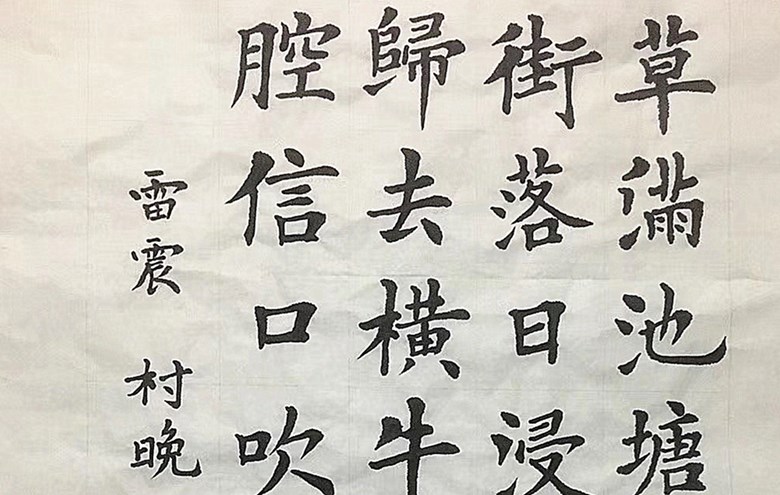 草滿池塘
街落日浸
歸去橫牛
腔信口吹
雷震 村晚